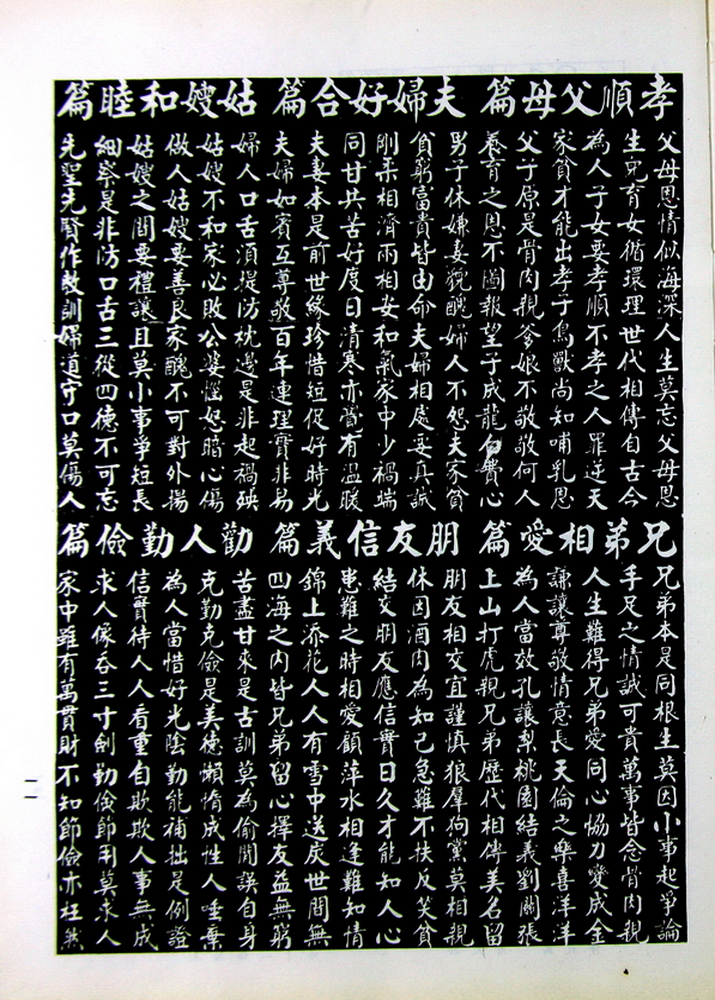 孝順父母篇
父母恩情似海深人生莫忘父母恩
生兒育女循環理世代相傳自古今
為人子女要孝順不孝之人罪逆天
家貧才能出孝子鳥獸尚知哺乳恩
父子原是骨肉親爹娘不敬敬何人
養育之恩不圖報望子成龍白費心
夫婦好合篇
男子休嫌妻貌醜婦人不怨夫家貧
貧窮富貴皆由命夫婦相處要真誠
剛柔相濟兩相安和氣家中少禍端
同甘共苦好度日清寒亦覺有溫暖
夫妻本是前世緣珍惜短促好時光
夫婦如賓互尊敬百年連理實非易
姑嫂和睦篇
婦人口舌須提防枕邊是非起禍殃
姑嫂不和家必敗公婆惱怒暗心傷
做人姑嫂要善良家醜不可對外揚
姑嫂之間要禮讓且莫小事爭短長
細察是非防口舌三從四德不可忘
先聖先賢作教訓婦道守口莫傷人
兄弟相愛篇
兄弟本是同根生莫因小事起爭論
手足之情誠可貴萬事皆念骨肉親
人生難得兄弟愛同心協力變成金
謙讓尊敬情意長天倫之樂喜洋洋
為人當效孔讓梨桃園結義劉關張
上山打虎親兄弟歷代相傳美名留
朋友信義篇
朋友相交宜謹慎狠羣狗黨莫相親
休因酒肉為知己急難不扶反笑貧
結交朋友應信實日久才能知人心
患難之時相愛顧萍水相逢難知情
錦上添花人人有雪中送炭世間無
四海之內皆兄弟留心擇友益無窮
勸人勤儉篇
苦盡甘來是古訓莫為偷閒誤自身
克勤克儉是美德懶惰成性人唾棄
為人當惜好光陰勤能補拙是例證
信實待人人看重自欺欺人事無成
求人像吞三寸劍勤儉節用莫求人
家中雖有萬貫財不知節儉亦枉然
二